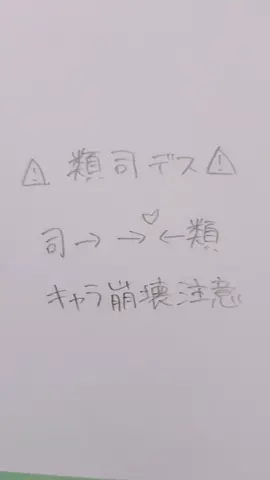 ⚠類司デス⚠
司→→♡←類
キャラ崩壊注意